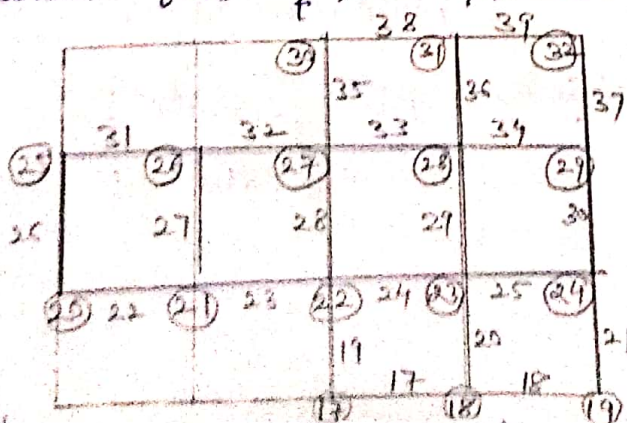 38 39
30 31 32
35 36 37
31 32 33 34
25 26 27 28 29
26 27 28 29 30
20 22 21 23 22 24 23 25 24
19 20 21
17 18
17 18 19